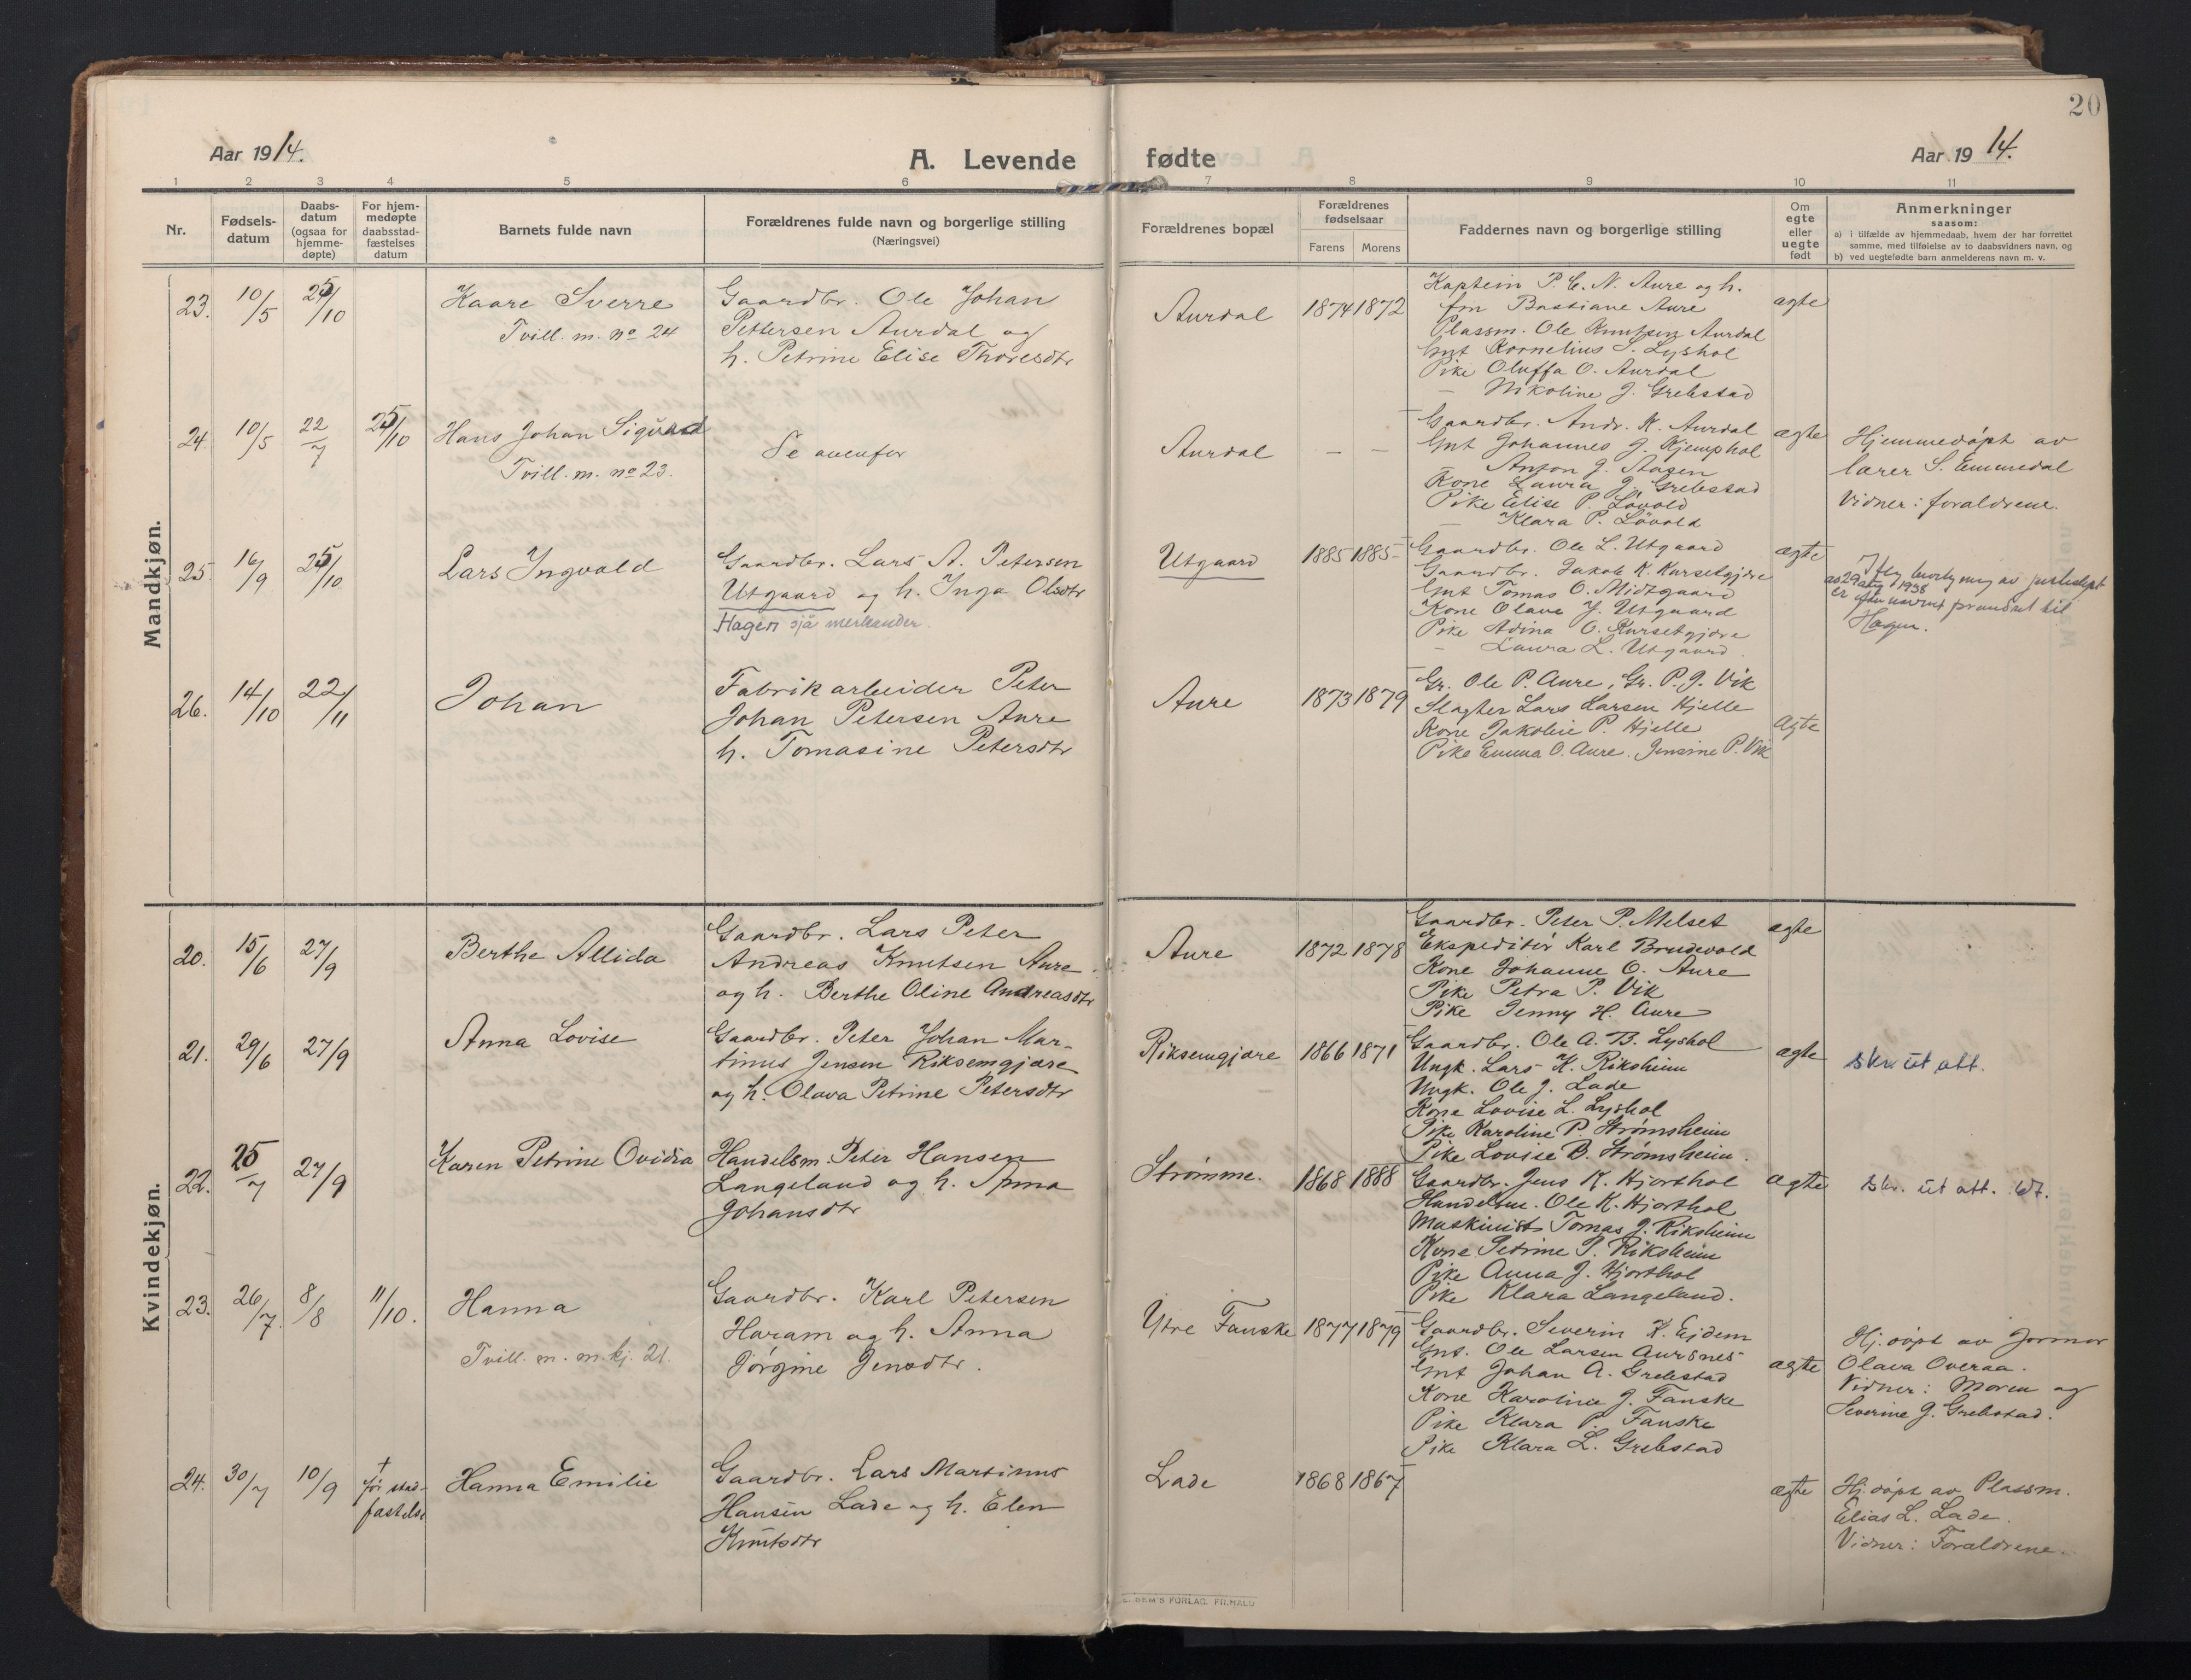 20
Aar 1914.
A. Levende fødte
Aar 1914.
1 2 3 4 5 6 7 8 9 10 11
Nr.
Fødsels-
datum
Daabs-
datum
(ogsaa for
hjemme-
døpte)
For hjem-
medøpte
daabsstad-
fæstelses
datum
Barnets fulde navn
Forældrenes fulde navn og borgerlige stilling
(Næringsvei)
Forældrenes bopæl
Forældrenes
fødselsaar
Farens Morens
Faddernes navn og borgerlige stilling
Om
egte
eller
uegte
født
Anmerkninger
saasom:
a) i tilfælde av hjemmedaab, hvem der har forrettet
samme, med tilføielse av to daabsvidners navn, og
b) ved uegtefødte barn anmelderens navn m. v.
Mandkjøn.
23. 10/5 25/10
Kaare Sverre
Tvill. m. no 24
Gaardbr. Ole Johan
Pettersen Aurdal og
h. Petrine Elise Thoresdtr
Aurdal 1874 1872
Kaptein P. C. N. Aure og h.
fru Bastiane Aure
Plassm. Ole Knutsen Aurdal
Gut Kornelius S. Lyshol
Pike Oluffa O. Aurdal
— Nikoline J. Grebstad
ægte
24. 10/5 22/7 25/10
Hans Johan Sigvard
Tvill. m. no 23.
Se ovenfor
Aurdal — —
Gaardbr. Andr. K. Aurdal
Gut Johannes J. Kjemphol
Anton J. Aasen
Kone Laura J. Grebstad
Pike Elise P. Løvold
— Klara P. Løvold
ægte
Hjemmedøpt av
lærer S. Emmedal
Vidner: forældrene.
25. 16/9 25/10
Lars Ingvald
Gaardbr. Lars A. Petersen
Utgaard og h. Inga Olsdtr
Hagen sjå merknader.
Utgaard 1885 1885
Gaardbr. Ole L. Utgaard
Gaardbr. Jakob K. Kursetgjøre
Gut Tomas O. Midtgaard
Kone Olava J. Utgaard
Pike Adina O. Kursetgjøre
— Laura L. Utgaard.
ægte
av 29 aug 1938
Hagen.
26. 14/10 22/11
Johan
Fabrikarbeider Peter
Johan Petersen Aure
h. Tomasine Petersdtr
Aure 1873 1879
Gr. Ole P. Aure, Gr. P. J. Vik
Slagter Lars Larsen Hjelle
Kone Jakobie P. Hjelle
Pike Emma O. Aure. Jensine P. Vik
ægte
Kvindekjøn.
20. 15/6 27/9
Berthe Allida
Gaardbr. Lars Peter
Andreas Knutsen Aure
og h. Berthe Oline Andreasdtr
Aure 1872 1878
Gaardbr. Peter P. Melset
Ekspeditør Karl Brudevold
Kone Johanne O. Aure
Pike Petra P. Vik
Pike Jenny H. Aure
ægte
21. 29/6 27/9
Anna Lovise
Gaardbr. Peter Johan Mar-
tinus Jensen Riksemgjære
og h. Olava Petrine Petersdtr
Riksemgjære 1866 1871
Gaardbr. Ole A. B. Lyshol
Ungk. Lars K. Riksheim
Ungk. Ole J. Lade
Kone Lovise L. Lyshol
Pike Karoline P. Strømsheim
Pike Lovise B. Strømsheim.
ægte
skr. ut att.
22. 25/7 27/9
Karen Petrine Ovidia
Handelsm. Peter Hansen
Langeland og h. Anna
Johansdtr
Strømme. 1868 1888
Gaardbr. Jens K. Hjorthol
Handelsm. Ole K. Hjorthol
Maskinist Tomas J. Riksheim
Kone Petrine P. Riksheim
Pike Anna J. Hjorthol
Pike Klara Langeland.
ægte
skr. ut att. 67.
23. 26/7. 8/8 11/10.
Hanna
Tvill. m. m.kj. 21.
Gaardbr. Karl Petersen
Haram og h. Anna
Jørgine Jensdtr.
Ytre Fauske 1877 1879
Gaardbr. Severin K. Eidem
Gut. Ole Larsen Aursnes
Gut Johan A. Grebstad
Kone Karoline J. Fauske
Pike Klara P. Fauske
Pike Klara L. Grebstad
ægte
Hj. døpt av Jormor
Olava Overaa.
Vidner: Moren og
Severine J. Grebstad.
24. 30/7 10/9
†
før stad-
fæstelse
Hanna Emilie
Gaardbr. Lars Martinus
Hansen Lade og h. Elen
Knutsdtr
Lade 1868 1867
ægte
Hj. døpt av Plassm.
Elias L. Lade.
Vidner: Forældrene.